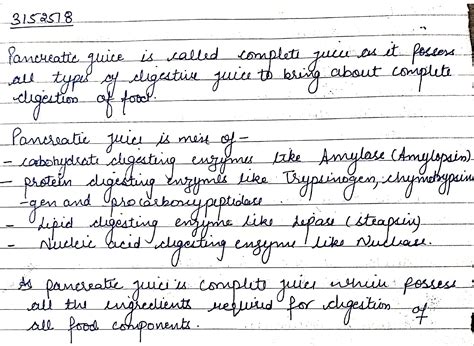 3152518
Pancreatic juice is called complete juice as it possess
all types of digestive juice to bring about complete
digestion of food.
Pancreatic juice is mix of -
- carbohydrate digesting enzymes like Amylase (Amylopsin)
- protein digesting enzymes like Trypsinogen, chymotrypsin
-gen and procarboxypeptidase.
- Lipid digesting enzyme like Lipase (steapsin)
- Nucleic acid digesting enzyme like Nuclease.
As pancreatic juice is complete juice which possess
all the ingredients required for digestion of
all food components.